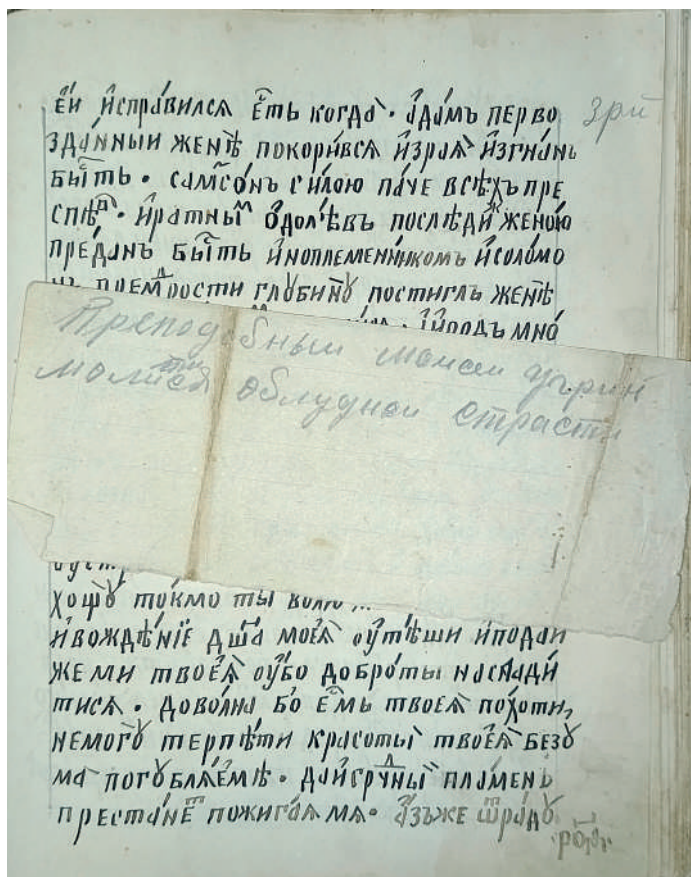 е҆́и и҆спра́вилсѧ є҆́сть когда̀ · а҆да́мъ перво
зри
зда́нныи женѣ̀ покори́всѧ и҆зраѧ̀ и҆згна́нъ
бы́сть · самсо́нъ си́лою па́че всѣ́хъ пре
спѣ́в · и҆ ра́тны одолѣ́въ послѣди́ жено́ю
пре́данъ бы́сть и҆ноплеме́нникомъ и҆ соло́мо
нъ прем́дрости глꙋбинꙋ̀ пости́глъ женѣ̀
и҆ и҆́родъ мно́
Преподобныи моисеи угрин
молитсѧ облуднои страсти
хощꙋ̀ то́кмо ты̀
и҆ вожделѣ́нїе дш҃а̀ моеѧ̀ ᲂу҆тѣ́ши и҆ пода́и
же ми твоеѧ̀ ᲂу҆́бо добро́ты наслади́
тисѧ · дово́лна бо е҆́смь твоеѧ̀ по́хоти,
немогꙋ̀ терпѣ́ти красоты̀ твоеѧ̀ безꙋ
ма̀ погꙋблѧ́емѣ · да и҆ срчⷣны пла́мень
преста́нет пожига́ѧ мѧ · а҆́зъ же ѿра́дꙋ